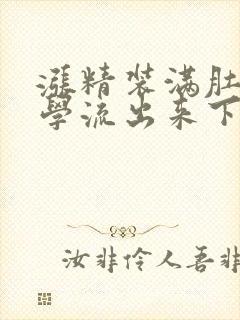 漲精装满肚
學流出来下
汝非伶人吾非